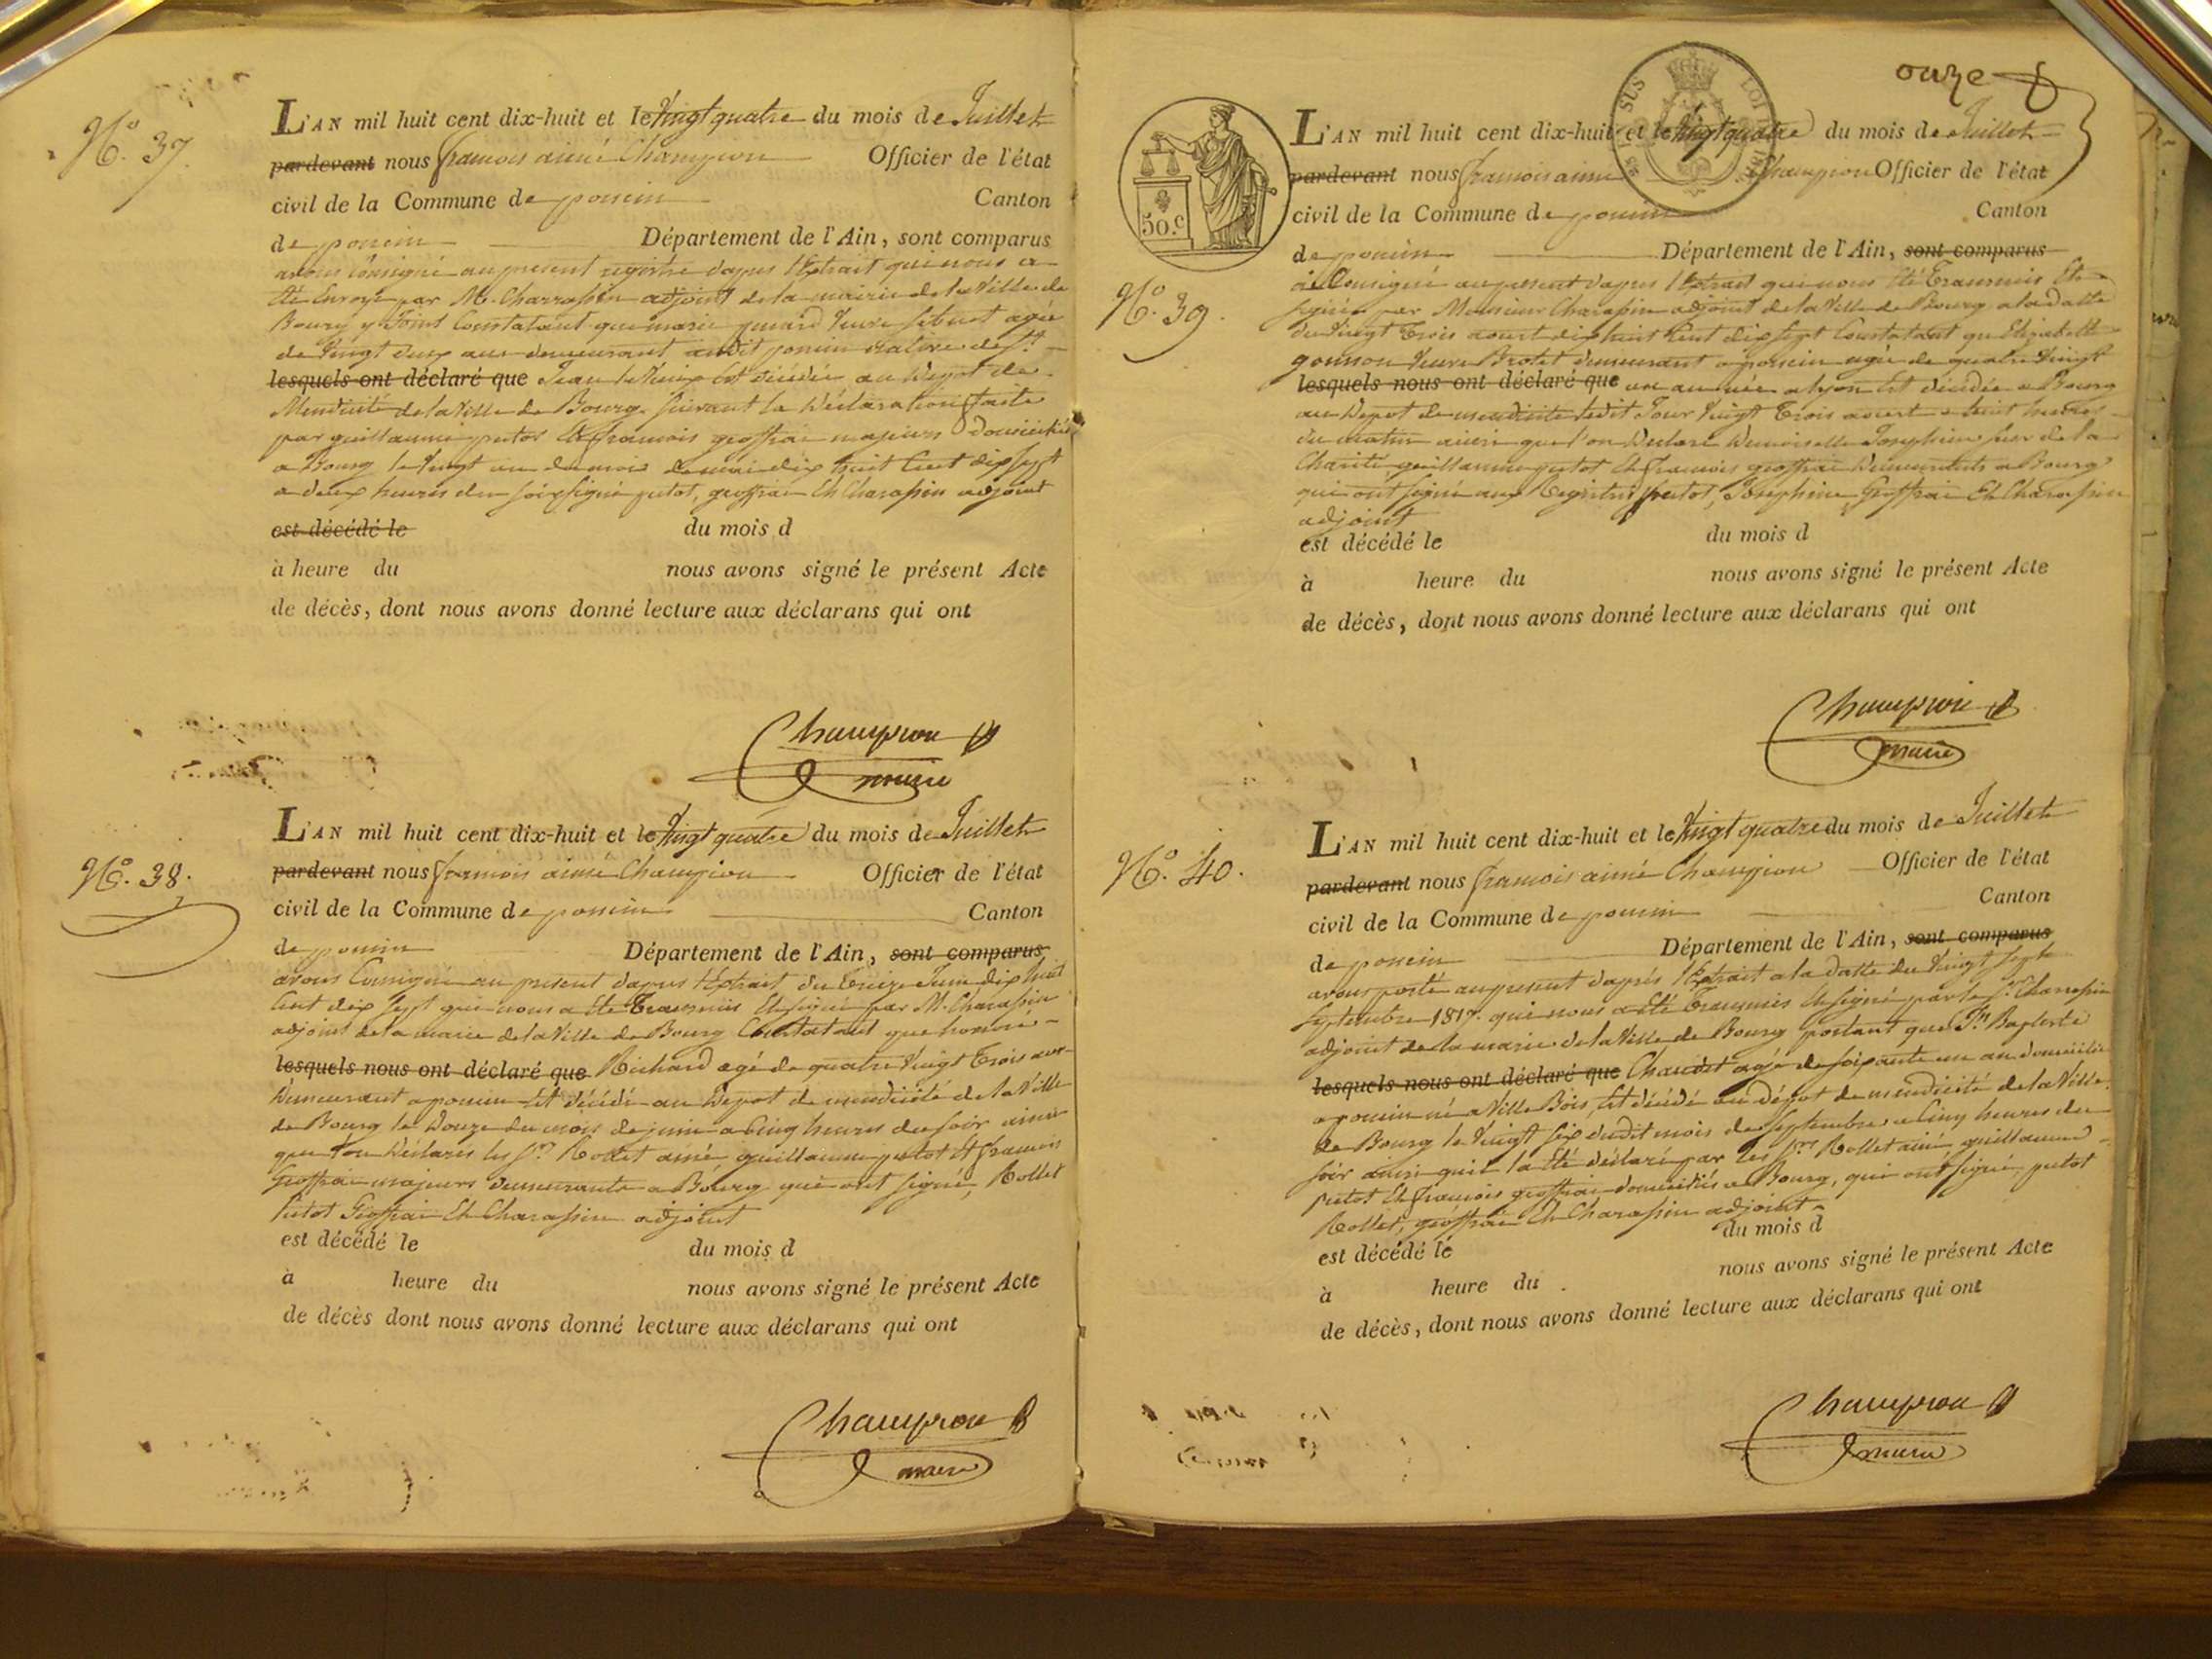 N.° 37.
L'AN mil huit cent dix-huit et le Vingt quatre du mois de Juillet
pardevant nous francois aimé Champion Officier de l'état
civil de la Commune de poncin Canton
de poncin Département de l'Ain, sont comparus
avons Consigné au present registre dapres l'Extrait qui nous a
été Envoyé par M. Charrassin adjoint de la mairie de la Ville de
Bourg y Joint Constatant que marie Veuve agée
de Vingt deux ans demeurant audit poncin native de St
lesquels ont déclaré que Jean le Vieux est décédée au Depot de
Mendicité de la Ville de Bourg, suivant la Déclaration faite
par guillaume putot Et francois geoffrai majeurs Domiciliés
a Bourg le Vingt un du mois de mai dix huit Cent dix sept
a deux heures du soir signé putot, geoffrai Et Charassin adjoint
est décédé le du mois d
à heure du nous avons signé le présent Acte
de décès, dont nous avons donné lecture aux déclarans qui ont
Champion
maire
N.° 38.
L'AN mil huit cent dix-huit et le Vingt quatre du mois de Juillet
pardevant nous francois aimé Champion Officier de l'état
civil de la Commune de poncin Canton
de poncin Département de l'Ain, sont comparus
avons Consigné au present dapres l'Extrait du Treize Juin dix huit
Cent dix sept qui nous a Eté Transmis Et signé par M. Charassin
adjoint de la mairie de la Ville de Bourg Constatant que honoré
lesquels nous ont déclaré que Richard agé de quatre Vingt Trois ans
Demeurant a poncin Est décédé au Depot de mendicité de la Ville
de Bourg le Douze du mois de juin a Cinq heures du soir ainsi
que l'on Déclarés les Srs Rollet ainé guillaume putot Et francois
Geoffrai majeurs demeurants a Bourg qui ont signé, Rollet
Putot Geoffrai Et Charassin adjoint
est décédé le du mois d
à heure du nous avons signé le présent Acte
de décès dont nous avons donné lecture aux déclarans qui ont
Champion
maire
onze
50.c
N.° 39.
L'AN mil huit cent dix-huit et le Vingt quatre du mois de Juillet
pardevant nous francois aimé Champion Officier de l'état
civil de la Commune de poncin Canton
de poncin Département de l'Ain, sont comparus
Consigné au present dapres l'Extrait qui nous Eté Transmis Et
signé par Monsieur Charassin adjoint de la Ville de Bourg a la Datte
du Vingt Trois aoust dix huit Cent dix sept Constatant qu Elizabeth
gonnon Veuve Brotet demeurant a poncin agée de quatre Vingt
lesquels nous ont déclaré que un an née a lyon Est décédée a Bourg
au Depot de mendicité ledit Jour Vingt Trois aoust a huit heures
du matin ainsi que l'on Déclaré Demoiselle Josephine sœur de la
Charité guillaume putot Et francois geoffrai Demeurants a Bourg
qui ont signé aux Registres putot, Josephine Geoffrai Et Charassin
adjoint
est décédé le du mois d
à heure du nous avons signé le présent Acte
de décès, dont nous avons donné lecture aux déclarans qui ont
Champion
maire
N.° 40.
L'AN mil huit cent dix-huit et le Vingt quatre du mois de Juillet
pardevant nous francois aimé Champion Officier de l'état
civil de la Commune de poncin Canton
de poncin Département de l'Ain, sont comparus
avons porté au present d'aprés l'Extrait a la Datte du Vingt sept
septembre 1817. qui nous a Eté Transmis Et signé par le Sr Charassin
adjoint de la mairie de la Ville de Bourg portant que Jn Baptiste
lesquels nous ont déclaré que Chaudet agé de soixante un an domicilié
a poncin né a Ville Bois, Est décédé au dépot de mendicité de la Ville
de Bourg le Vingt six dudit mois de septembre a Cinq heures du
soir ainsi quil la Eté déclaré par les Srs Rollet ainé guillaume
putot Et francois geoffrai domiciliés a Bourg, qui ont signé, putot
Rollet, geoffrai Et Charassin adjoint
est décédé le du mois d
à heure du nous avons signé le présent Acte
de décès, dont nous avons donné lecture aux déclarans qui ont
Champion
maire